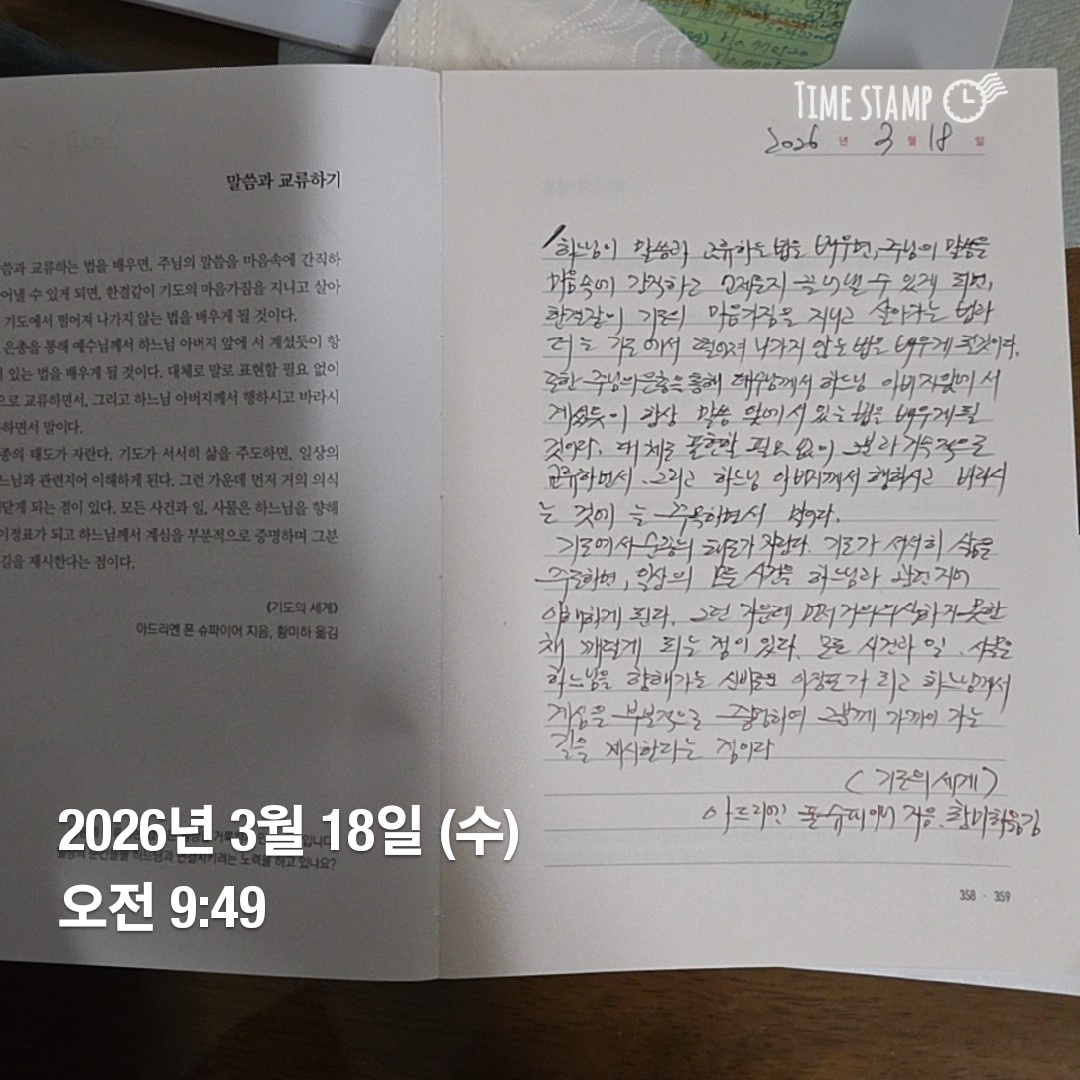 TIME STAMP
2026 년 3 월 18 일
말씀과 교류하기
씀과 교류하는 법을 배우면, 주님의 말씀을 마음속에 간직하
어낼 수 있게 되면, 한결같이 기도의 마음가짐을 지니고 살아
기도에서 떨어져 나가지 않는 법을 배우게 될 것이다.
은총을 통해 예수님께서 하느님 아버지 앞에 서 계셨듯이 항
있는 법을 배우게 될 것이다. 대체로 말로 표현할 필요 없이
으로 교류하면서, 그리고 하느님 아버지께서 행하시고 바라시
하면서 말이다.
종의 태도가 자란다. 기도가 서서히 삶을 주도하면, 일상의
느님과 관련지어 이해하게 된다. 그런 가운데 먼저 거의 의식
닫게 되는 점이 있다. 모든 사건과 일, 사물은 하느님을 향해
이정표가 되고 하느님께서 계심을 부분적으로 증명하며 그분
길을 제시한다는 점이다.
《기도의 세계》
아드리엔 폰 슈파이어 지음, 황미하 옮김
하느님이 말씀과 교류하는 법을 배우면, 주님의 말씀을
마음속에 간직하고 언제든지 끌어낼 수 있게 되면,
한결같이 기도의 마음가짐을 지니고 살아가는 법과
더는 기도에서 떨어져 나가지 않는 법을 배우게 될것이다.
또한 주님의 은총을 통해 예수님께서 하느님 아버지앞에 서
계셨듯이 항상 말씀 앞에 서 있는 법을 배우게 될
것이다. 대체로 표현할 필요 없이 그분과 지속적으로
교류하면서 그리고 하느님 아버지께서 행하시고 바라시
는 것에 는 주목하면서 말이다.
기도에서 순종의 태도가 자란다. 기도가 서서히 삶을
주도하면, 일상의 모든 사건을 하느님과 관련지어
이해하게 된다. 그런 가운데 먼저 거의 의식하지 못한
채 깨닫게 되는 점이 있다. 모든 사건과 일, 사물은
하느님을 향해가는 신비로운 이정표가 되고 하느님께서
계심을 부분적으로 증명하며 그분께 가까이 가는
길을 제시한다는 점이다
(기도의 세계)
아드리엔 폰 슈파이어 지음, 황미하옮김
358 · 359
느님과 연결시키려는 노력을 하고 있나요?
2026년 3월 18일 (수)
오전 9:49